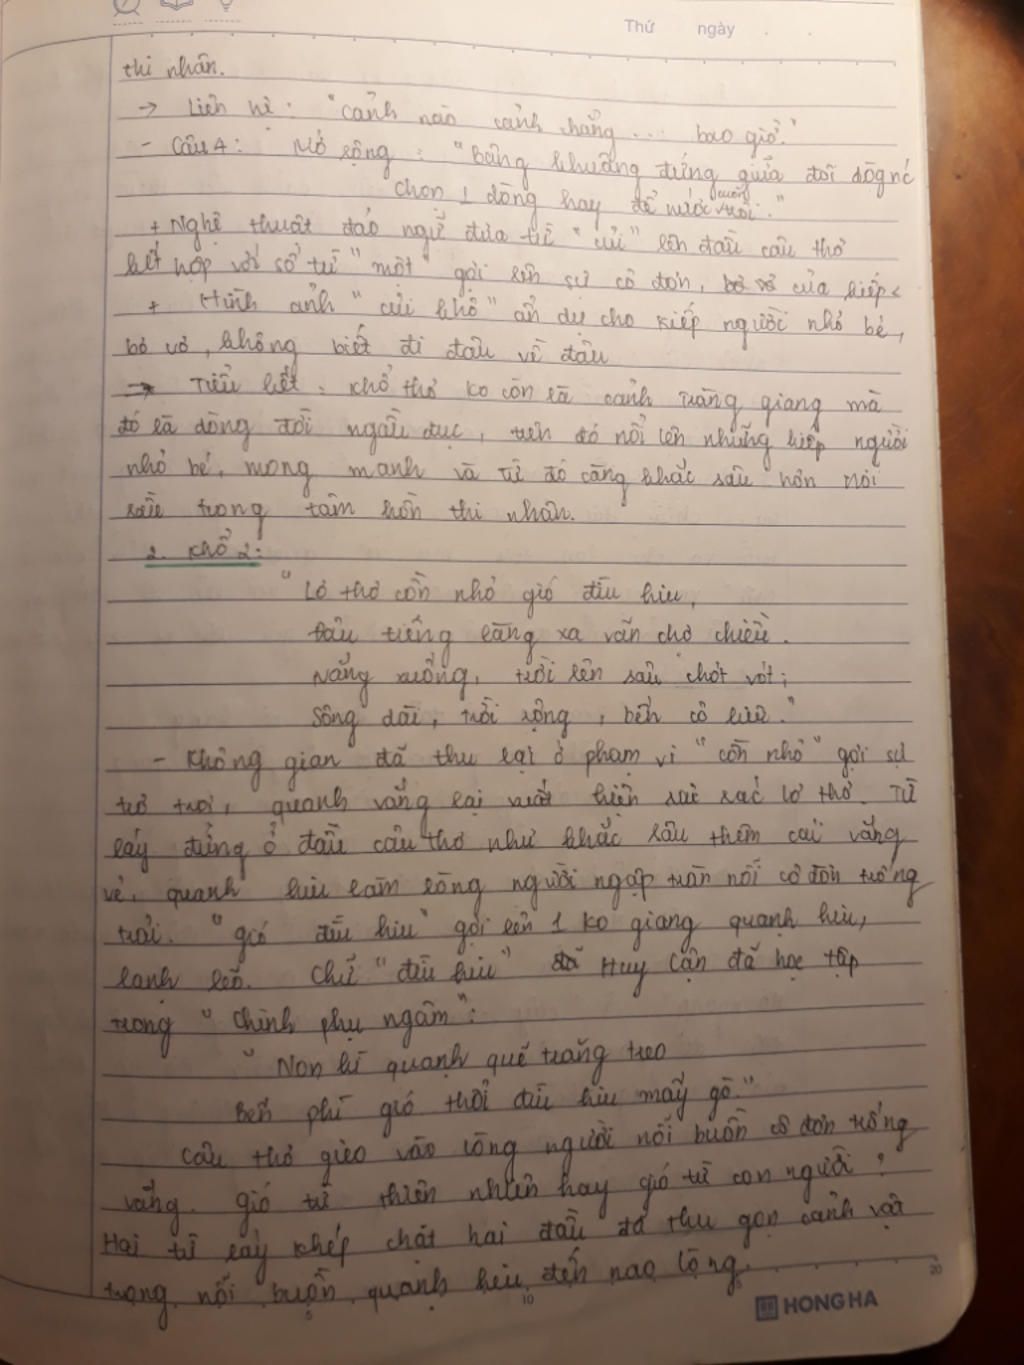 Thứ ngày
thi nhân.
→ Liên hệ: "cảnh nào cảnh chẳng... bao giờ."
- Câu 4: Mở rộng: "Bâng khuâng đứng giữa đôi dòg nc
Chọn 1 dòng hay để nước cuốn trôi."
+ Nghệ thuật đảo ngữ đưa từ "củi" lên đầu câu thơ
kết hợp với số từ "một" gợi lên sự cô đơn, bơ vơ của kiếp <
+ Hình ảnh "củi khô" ẩn dụ cho kiếp người nhỏ bé,
bơ vơ, không biết đi đâu về đâu
→ Tiểu kết: Khổ thơ ko còn là cảnh tràng giang mà
đó là dòng đời ngầu đục, trên đó nổi lên những kiếp người
nhỏ bé, mong manh và từ đó càng khắc sâu hơn nỗi
sầu trong tâm hồn thi nhân.
2. Khổ 2:
"Lơ thơ cồn nhỏ gió đìu hiu,
Đâu tiếng làng xa vãn chợ chiều.
Nắng xuống, trời lên sâu chót vót;
Sông dài, trời rộng, bến cô liêu."
- Không gian đã thu lại ở phạm vi "cồn nhỏ" gợi sự
trơ trọi, quạnh vắng lại xuất hiện xác xác lơ thơ. Từ
láy đứng ở đầu câu thơ như khắc sâu thêm cái vắng
vẻ, quạnh hiu làm lòng người ngập tràn nỗi cô đơn trống
trải. "gió đìu hiu" gợi lên 1 ko giang quạnh hiu,
lạnh lẽo. Chữ "đìu hiu" Huy Cận đã học tập
trong "Chinh phụ ngâm":
"Non kì quạnh quẽ trăng treo
Bến phì gió thổi đìu hiu mấy gò."
Câu thơ gieo vào lòng người nỗi buồn cô đơn trống
vắng. Gió từ thiên nhiên hay gió từ con người?
Hai từ láy khép chặt hai đầu đã thu gọn cảnh vật
trong nỗi buồn quạnh hiu đến nao lòng.
5 10 15 20
HONG HA